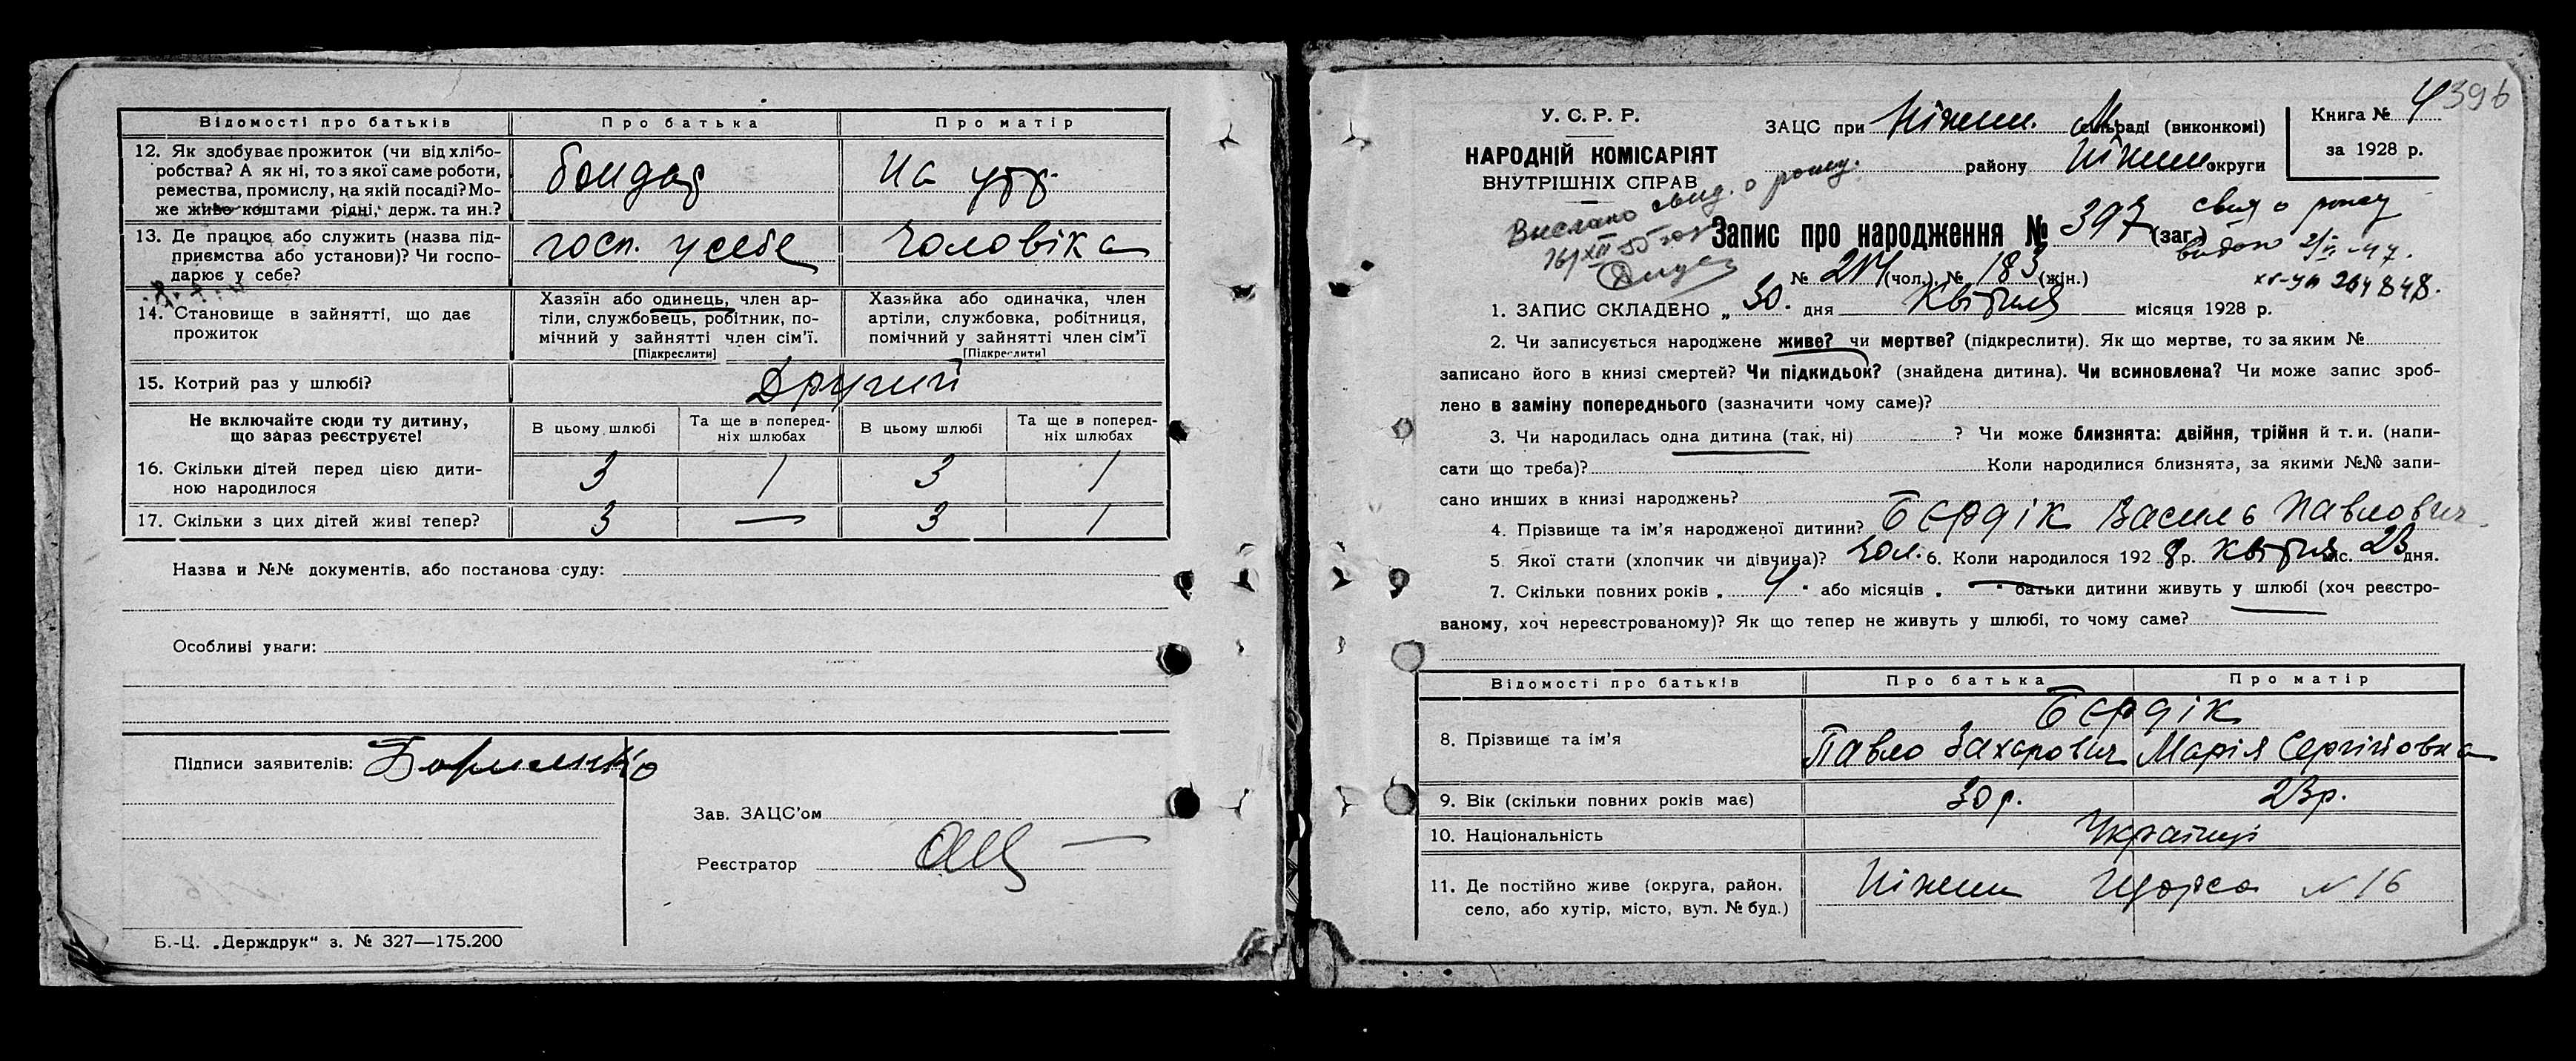 Відомості про батьків Про батька Про матір
12. Як здобуває прожиток (чи від хлібо-
робства? А як ні, то з якої саме роботи,
ремества, промислу, на якій посаді? Мо-
же живе коштами рідні, держ. та ин.?
бондар
На утр.
13. Де працює або служить (назва під-
приємства або установи)? Чи госпо-
дарює у себе?
госп. у себе
чоловіка
14. Становище в зайнятті, що дає
прожиток
Хазяїн або одинець, член ар-
тіли, службовець, робітник, по-
мічний у зайнятті член сім'ї.
[Підкреслити]
Хазяйка або одиначка, член
артіли, службовка, робітниця,
помічний у зайнятті член сім'ї
[Підкреслити]
15. Котрий раз у шлюбі? Другий
Не включайте сюди ту дитину,
що зараз реєструєте!
В цьому шлюбі
Та ще в поперед-
ніх шлюбах
В цьому шлюбі
Та ще в поперед-
ніх шлюбах
16. Скільки дітей перед цією дити-
ною народилося
3 1 3 1
17. Скільки з цих дітей живі тепер? 3 — 3 1
Назва и №№ документів, або постанова суду:
Особливі уваги:
Підписи заявителів:
Зав. ЗАЦС'ом
Реєстратор
Б.-Ц. „Держдрук“ з. № 327—175.200
396
У. С. Р. Р.
НАРОДНІЙ КОМІСАРІЯТ
ВНУТРІШНІХ СПРАВ
ЗАЦС при Ніжин. М. сільраді (виконкомі)
району Ніжин округи
Книга № 4
за 1928 р.
Вислано свид. о рожд.
Запис про народження № 397 (заг.)
свид о рожд
видано
264848.
№ 214 (чол.) № 183 (жін.)
1. ЗАПИС СКЛАДЕНО „ 30. дня Квітня місяця 1928 р.
2. Чи записується народжене живе? чи мертве? (підкреслити). Як що мертве, то за яким №
записано його в книзі смертей? Чи підкидьок? (знайдена дитина). Чи всиновлена? Чи може запис зроб-
лено в заміну попереднього (зазначити чому саме)?
3. Чи народилась одна дитина (так, ні) ? Чи може близнята: двійня, трійня й т. и. (напи-
сати що треба)? Коли народилися близнята, за якими №№ запи-
сано инших в книзі народжень?
4. Прізвище та ім'я народженої дитини? Бердік Василь Павлович
5. Якої стати (хлопчик чи дівчина)? чол. 6. Коли народилося 1928 р. Квітня міс. 23 дня.
7. Скільки повних років „ 4 “ або місяців „ — “ батьки дитини живуть у шлюбі (хоч реєстро-
ваному, хоч нереєстрованому)? Як що тепер не живуть у шлюбі, то чому саме?
Відомості про батьків Про батька Про матір
8. Прізвище та ім'я
Бердік
Павло Захарович Марія Сергійовна
9. Вік (скільки повних років має) 30 р. 23 р.
10. Національність Українці
11. Де постійно живе (округа, район,
село, або хутір, місто, вул. № буд.)
Ніжин Щорса № 16